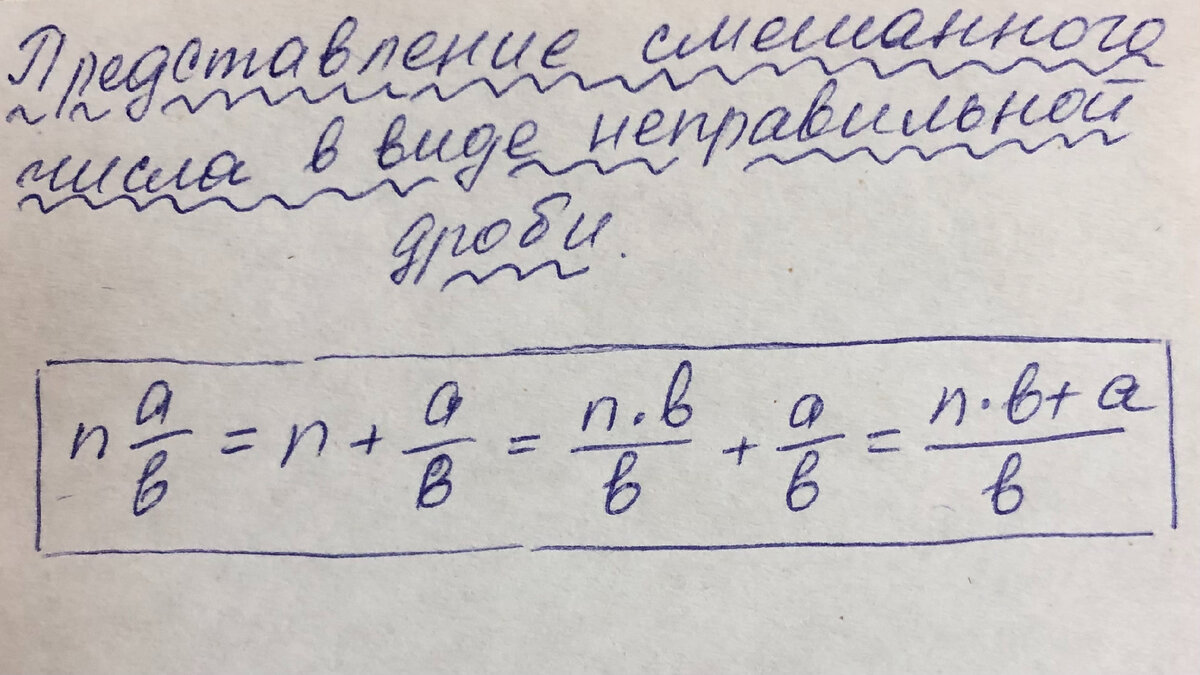 Представление смешанного
числа в виде неправильной
дроби.
n a/в = n + a/в = n·в/в + a/в = n·в+a/в